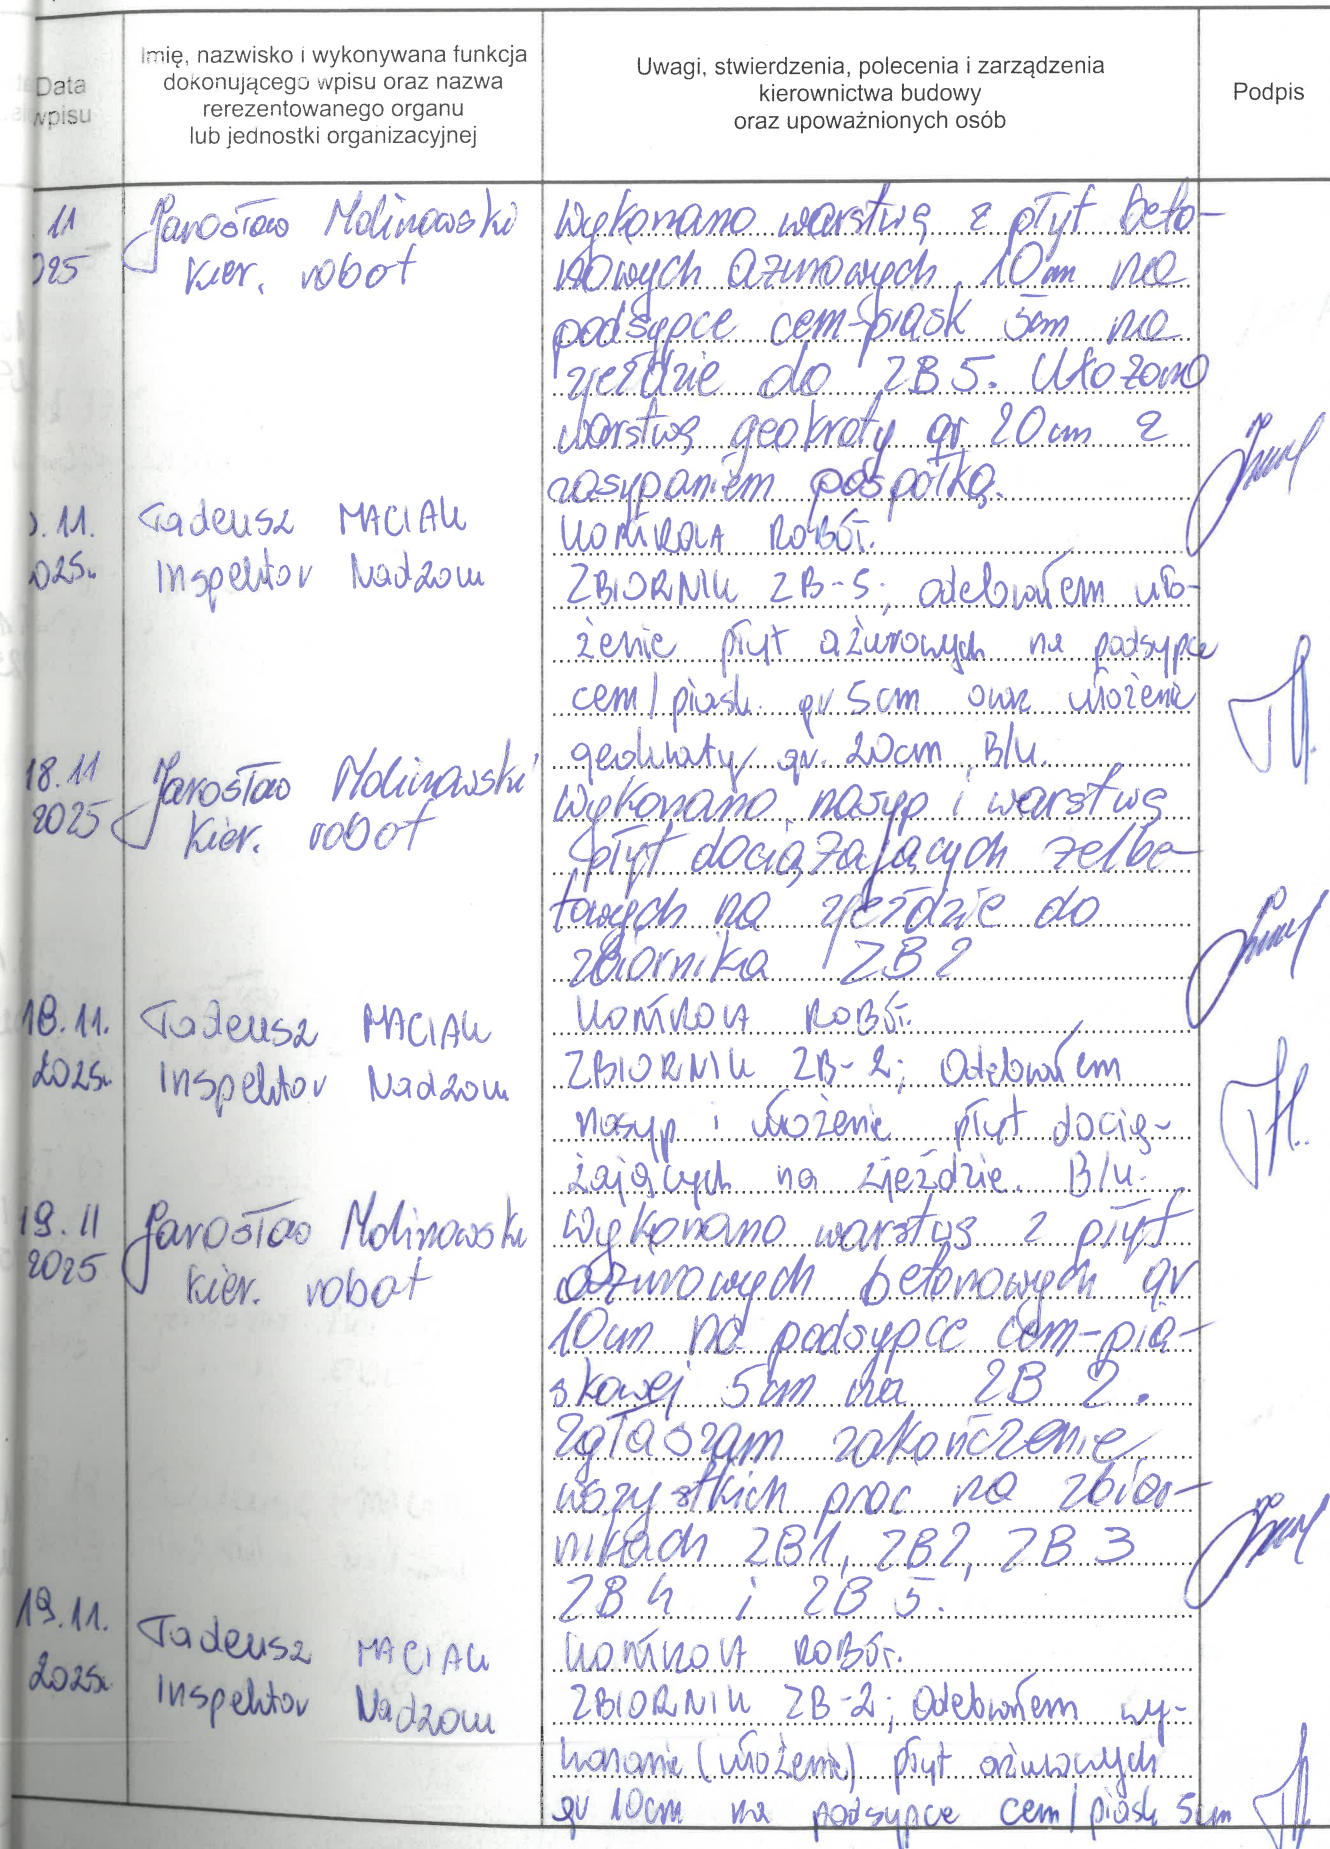 Data
wpisu
Imię, nazwisko i wykonywana funkcja
dokonującego wpisu oraz nazwa
rerezentowanego organu
lub jednostki organizacyjnej
Uwagi, stwierdzenia, polecenia i zarządzenia
kierownictwa budowy
oraz upoważnionych osób
Podpis
11
025
Jarosław Molinowski
Kier. robot
Wykonano warstwę z płyt beto-
nowych ażurowych 10cm na
podsypce cem-piask 5cm na
zjeździe do ZB5. Ułożono
warstwę geokraty gr 20cm z
zasypaniem pospółką.
11.
025r.
Tadeusz MACIAK
Inspektor Nadzoru
KONTROLA ROBÓT.
ZBIORNIK ZB-5; odebrałem uło-
żenie płyt ażurowych na podsypce
cem/piask. gr 5cm oraz ułożenie
geokraty gr. 20cm B/U.
18.11
2025
Jarosław Molinowski
Kier. robot
Wykonano nasyp i warstwę
płyt dociążających żelbe-
towych na zjeździe do
zbiornika ZB2
18.11.
2025r.
Tadeusz MACIAK
Inspektor Nadzoru
KONTROLA ROBÓT.
ZBIORNIK ZB-2; Odebrałem
nasyp i ułożenie płyt docią-
żających na zjeździe. B/U.
19.11
2025
Jarosław Molinowski
Kier. robot
Wykonano warstwę z płyt
ażurowych betonowych gr
10cm na podsypce cem-pia-
skowej 5cm na ZB 2.
Zgłaszam zakończenie
wszystkich prac na zbior-
nikach ZB1, ZB2, ZB 3
ZB 4 i ZB 5.
19.11.
2025r.
Tadeusz MACIAK
Inspektor Nadzoru
KONTROLA ROBÓT.
ZBIORNIK ZB-2; Odebrałem wy-
konanie (ułożenie) płyt ażurowych
gr 10cm na podsypce cem/piask 5cm